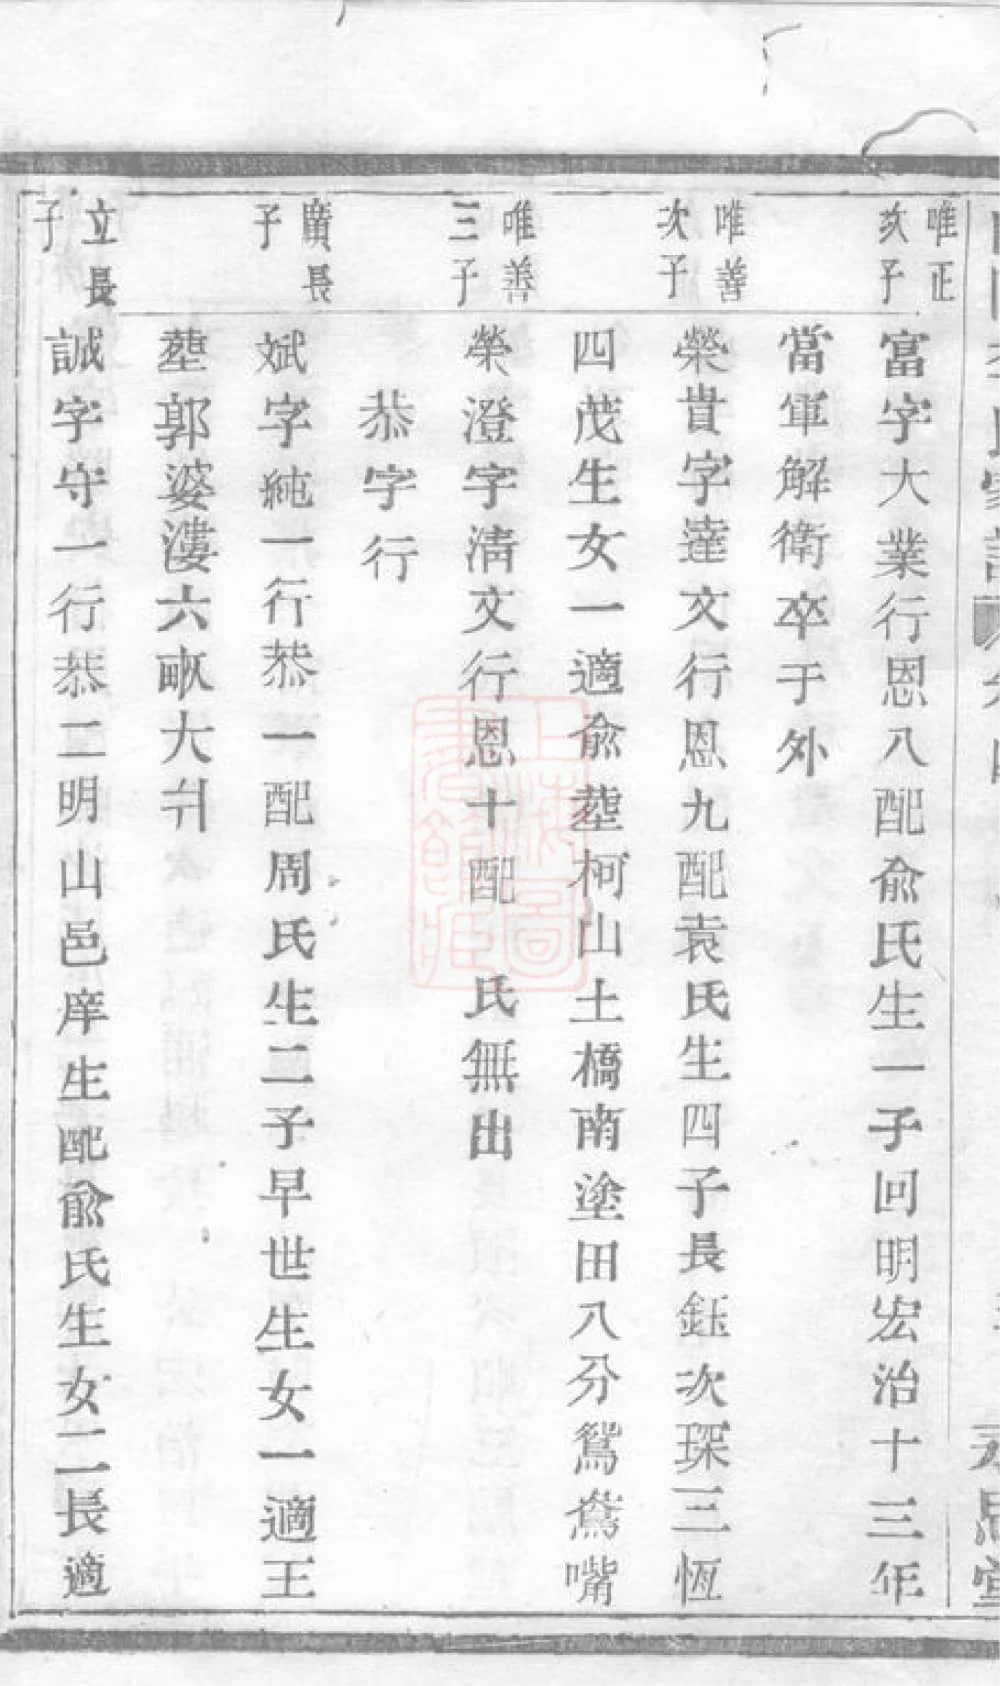 唯正
次子
富字大業行恩八配俞氏生一子回明宏治十三年
當軍解衛卒于外
唯善
次子
榮貴字達文行恩九配袁氏生四子長鈺次琛三恆
四茂生女一適俞塟柯山土橋南塗田八分鴛鴦嘴
唯善
三子
榮澄字清文行恩十配 氏無出
恭字行
廣長
子
斌字純一行恭一配周氏生二子早世生女一適王
塟郭婆漊六畝大
立長
子
誠字守一行恭二明山邑庠生配俞氏生女二長適
永思堂
上海圖書館藏